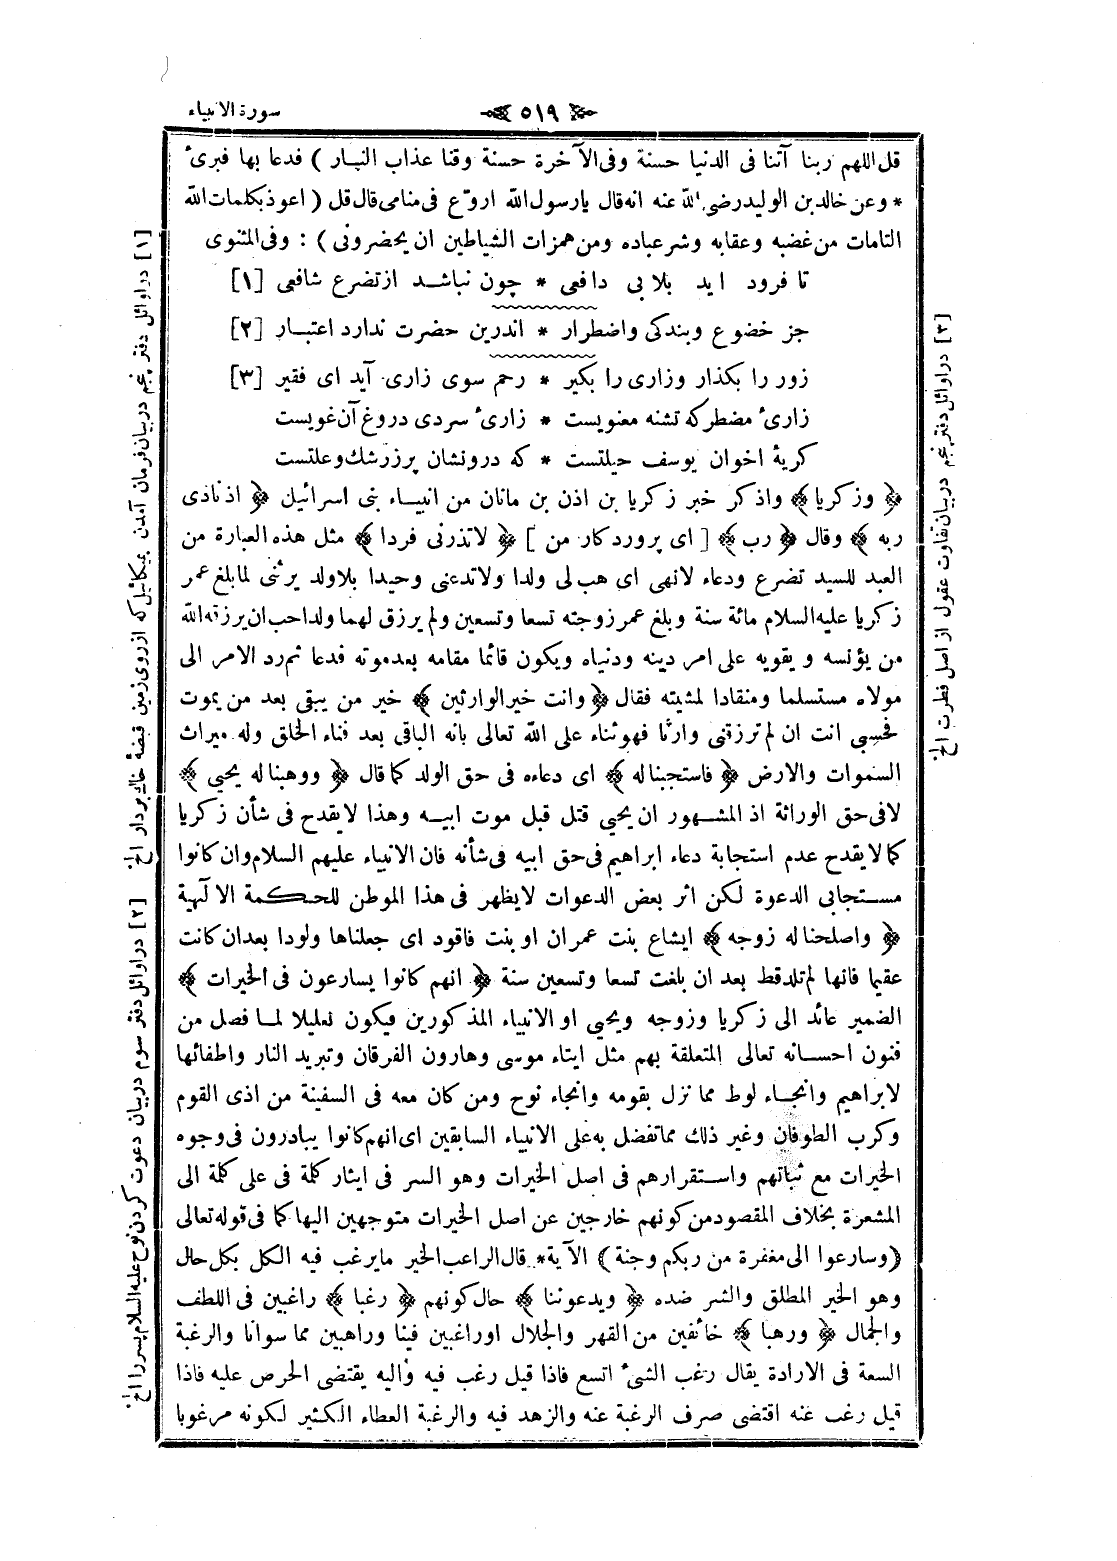 سورة الانبياء
٥١٩
قل اللهم ربنا آتنا فى الدنيا حسنة وفى الآخرة حسنة وقنا عذاب النار ) فدعا بها فبرئ
* وعن خالد بن الوليد رضى الله عنه انه قال يارسول الله اروّع فى منامى قال قل ( اعوذ بكلمات الله
التامات من غضبه وعقابه وشر عباده ومن همزات الشياطين ان يحضرونى ) : وفى المثنوى
تا فرود ايد بلا بى دافعى * چون نباشد از تضرع شافعى [١]
جز خضوع وبندكى واضطرار * اندرين حضرت ندارد اعتبار [٢]
زور را بكذار وزارى را بكير * رحم سوى زارى آيد اى فقير [٣]
زارئ مضطر كه تشنه معنويست * زارئ سردى دروغ آن غويست
كرية اخوان يوسف حيلتست * كه درونشان پرزرشك وعلتست
﴿ وزكريا ﴾ واذكر خبر زكريا بن اذن بن مانان من انبياء بنى اسرائيل ﴿ اذ نادى
ربه ﴾ وقال ﴿ رب ﴾ [ اى پروردكار من ] ﴿ لاتذرنى فردا ﴾ مثل هذه العبارة من
العبد للسيد تضرع ودعاء لانهى اى هب لى ولدا ولاتدعنى وحيدا بلاولد يرثنى لمابلغ عمر
زكريا عليه السلام مائة سنة وبلغ عمر زوجته تسعا وتسعين ولم يرزق لهما ولد احب ان يرزقه الله
من يؤنسه و يقويه على امر دينه ودنياه ويكون قائما مقامه بعد موته فدعا ثم رد الامر الى
مولاه مستسلما ومنقادا لمشيئته فقال ﴿ وانت خير الوارثين ﴾ خير من يبقى بعد من يموت
فحسبى انت ان لم ترزقنى وارثا فهو ثناء على الله تعالى بانه الباقى بعد فناء الخلق وله ميراث
السموات والارض ﴿ فاستجبنا له ﴾ اى دعاءه فى حق الولد كما قال ﴿ ووهبنا له يحيى ﴾
لافى حق الوراثة اذ المشهور ان يحيى قتل قبل موت ابيه وهذا لايقدح فى شأن زكريا
كما لايقدح عدم استجابة دعاء ابراهيم فى حق ابيه فى شأنه فان الانبياء عليهم السلام وان كانوا
مستجابى الدعوة لكن اثر بعض الدعوات لايظهر فى هذا الموطن للحكمة الالهية
﴿ واصلحنا له زوجه ﴾ ايشاع بنت عمران او بنت فاقود اى جعلناها ولودا بعد ان كانت
عقيما فانها لم تلد قط بعد ان بلغت تسعا وتسعين سنة ﴿ انهم كانوا يسارعون فى الخيرات ﴾
الضمير عائد الى زكريا وزوجه ويحيى او الانبياء المذكورين فيكون تعليلا لما فصل من
فنون احسانه تعالى المتعلقة بهم مثل ايتاء موسى وهارون الفرقان وتبريد النار واطفائها
لابراهيم وانجاء لوط مما نزل بقومه وانجاء نوح ومن كان معه فى السفينة من اذى القوم
وكرب الطوفان وغير ذلك مما تفضل به على الانبياء السابقين اى انهم كانوا يبادرون فى وجوه
الخيرات مع ثباتهم واستقرارهم فى اصل الخيرات وهو السر فى ايثار كلمة فى على كلة الى
المشعرة بخلاف المقصود من كونهم خارجين عن اصل الخيرات متوجهين اليها كما فى قوله تعالى
( وسارعوا الى مغفرة من ربكم وجنة ) الآية * قال الراغب الخير مايرغب فيه الكل بكل حال
وهو الخير المطلق والشر ضده ﴿ ويدعوننا ﴾ حال كونهم ﴿ رغبا ﴾ راغبين فى اللطف
والجمال ﴿ ورهبا ﴾ خائفين من القهر والجلال اوراغبين فينا وراهبين مما سوانا والرغبة
السعة فى الارادة يقال رغب الشئ اتسع فاذا قيل رغب فيه واليه يقتضى الحرص عليه فاذا
قيل رغب عنه اقتضى صرف الرغبة عنه والزهد فيه والرغبة العطاء الكثير لكونه مرغوبا
[١] در اوائل دفتر پنجم دربيان فرمان آمدن بميكائيل كه از روى زمين قبضۀ خاك بردار الخ
[٢] در اوائل دفتر سوم دربيان دعوت كردن نوح عليه السلام پسر را الخ
[٣] در اوائل دفتر پنجم دربيان تفاوت عقول از اصل فطرت الخ